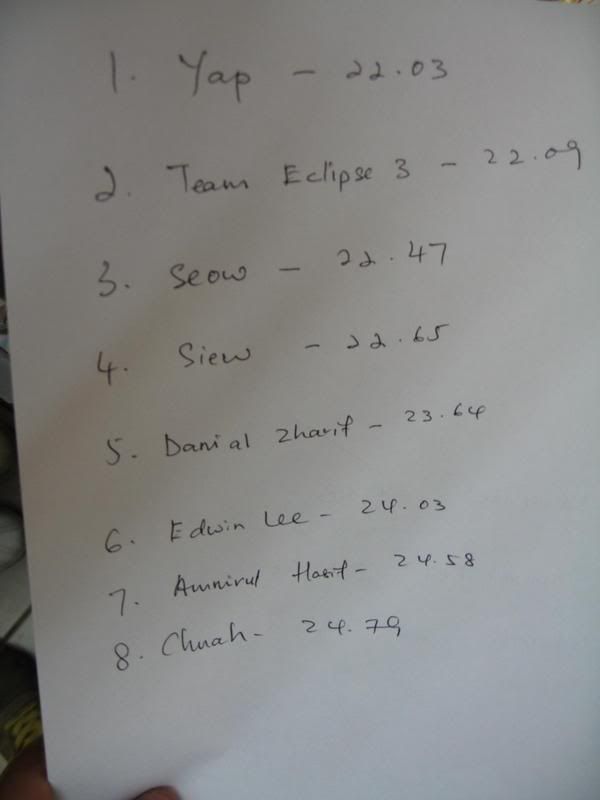 1. Yap - 22.03
2. Team Eclipse 3 - 22.09
3. Seow - 22.47
4. Siew - 22.65
5. Danial Zharif - 23.64
6. Edwin Lee - 24.03
7. Amnirul Hasif - 24.58
8. Chuah - 24.79